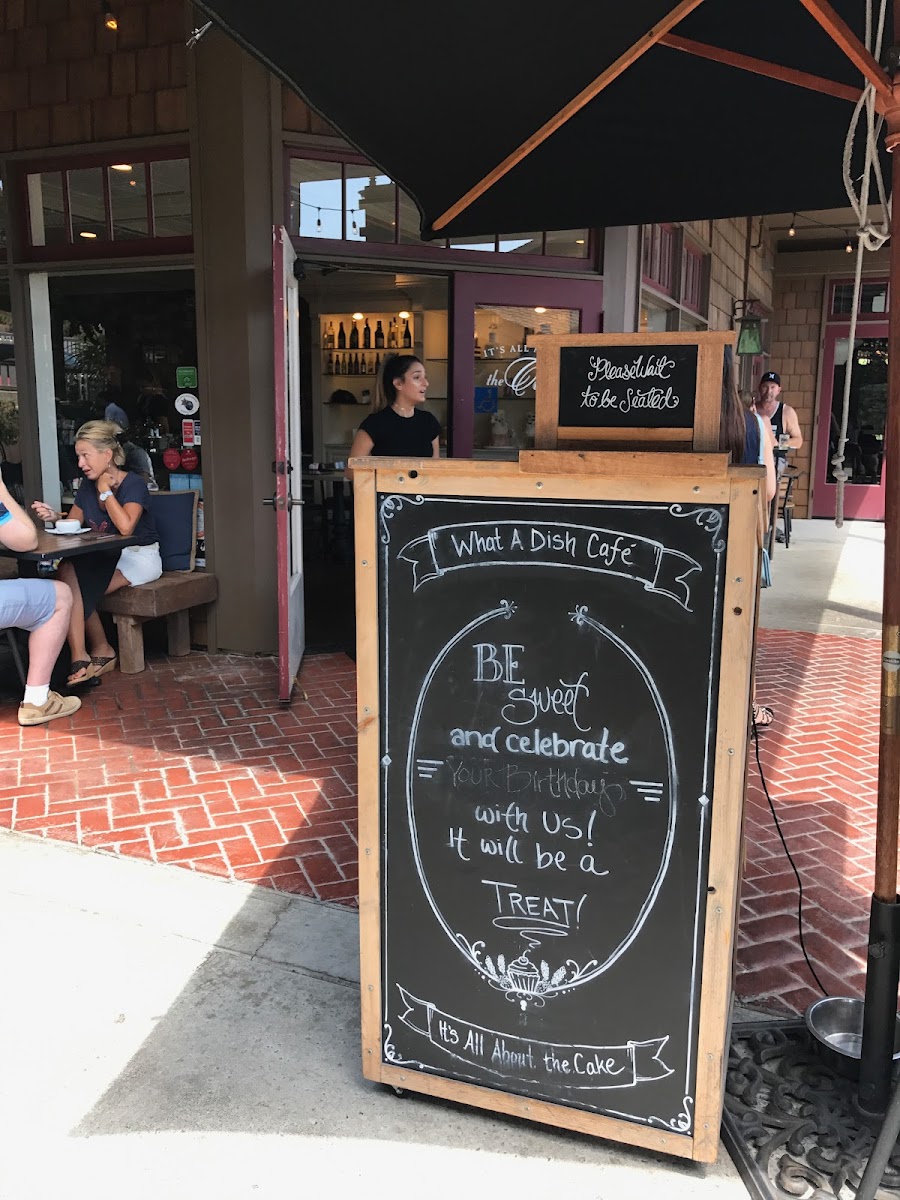 IT'S ALL
the
Please Wait
to be Seated
What A Dish Café
BE
Sweet
and celebrate
Your Birthday
with US!
It will be a
TREAT!
It's All About the Cake